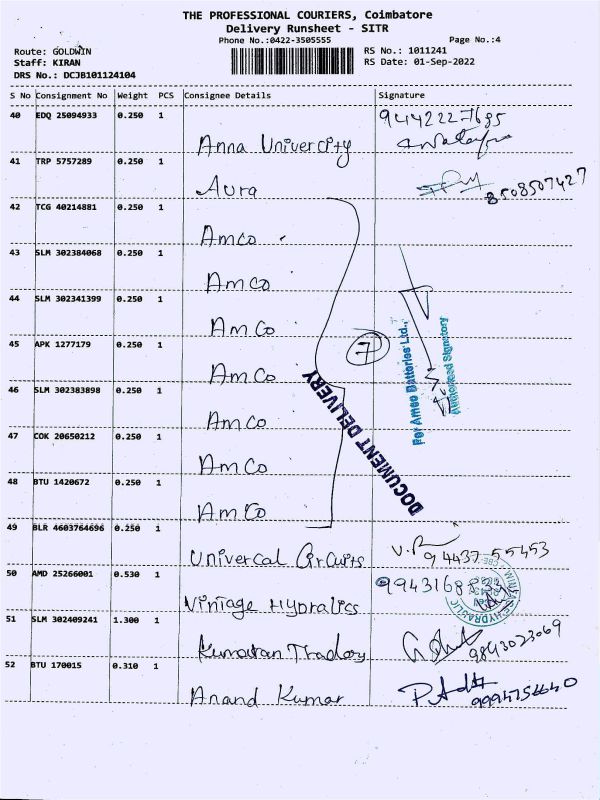 THE PROFESSIONAL COURIERS, Coimbatore
Delivery Runsheet - SITR
Phone No.:0422-3505555 Page No.:4
Route: GOLDWIN RS No.: 1011241
Staff: KIRAN RS Date: 01-Sep-2022
DRS No.: DCJB101124104
S No Consignment No Weight PCS Consignee Details Signature
40 EDQ 25094933 0.250 1 9442227685
Anna Univercity
41 TRP 5757289 0.250 1
Aura 8508507427
42 TCG 40214881 0.250 1
Amco
43 SLM 302384068 0.250 1
Amco
44 SLM 302341399 0.250 1
Amco
45 APK 1277179 0.250 1 7
Amco
For Amco Batteries Ltd.,
Authorised Signatory
46 SLM 302383898 0.250 1
Amco
DOCUMENT DELIVERY
47 COK 20650212 0.250 1
Amco
48 BTU 1420672 0.250 1
Amco
49 BLR 4603764696 0.250 1
Univercal Circuits 94437 55453
50 AMD 25266001 0.530 1
Vintage Hydralics
51 SLM 302409241 1.300 1
Kumaran Tradoy 9843023069
52 BTU 170015 0.310 1
Anand Kumar